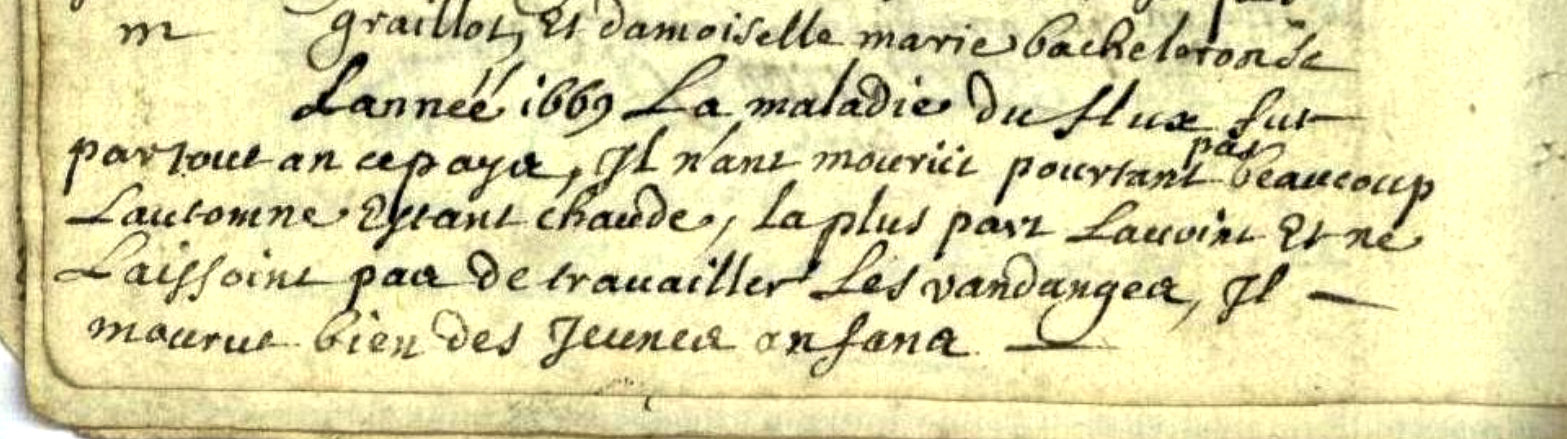 m graillot, Et damoiselle marie bachelero
Lanneé 1669 La maladie du flux fut
partout an ce pays, Il n'ant mouriit pourtant pas beaucoup
Lautomne Estant chaude, la plus part Lauoint Et ne
Laissoint pas de trauailler Les vandanges, Il —
mourut bien des Jeunes anfans —